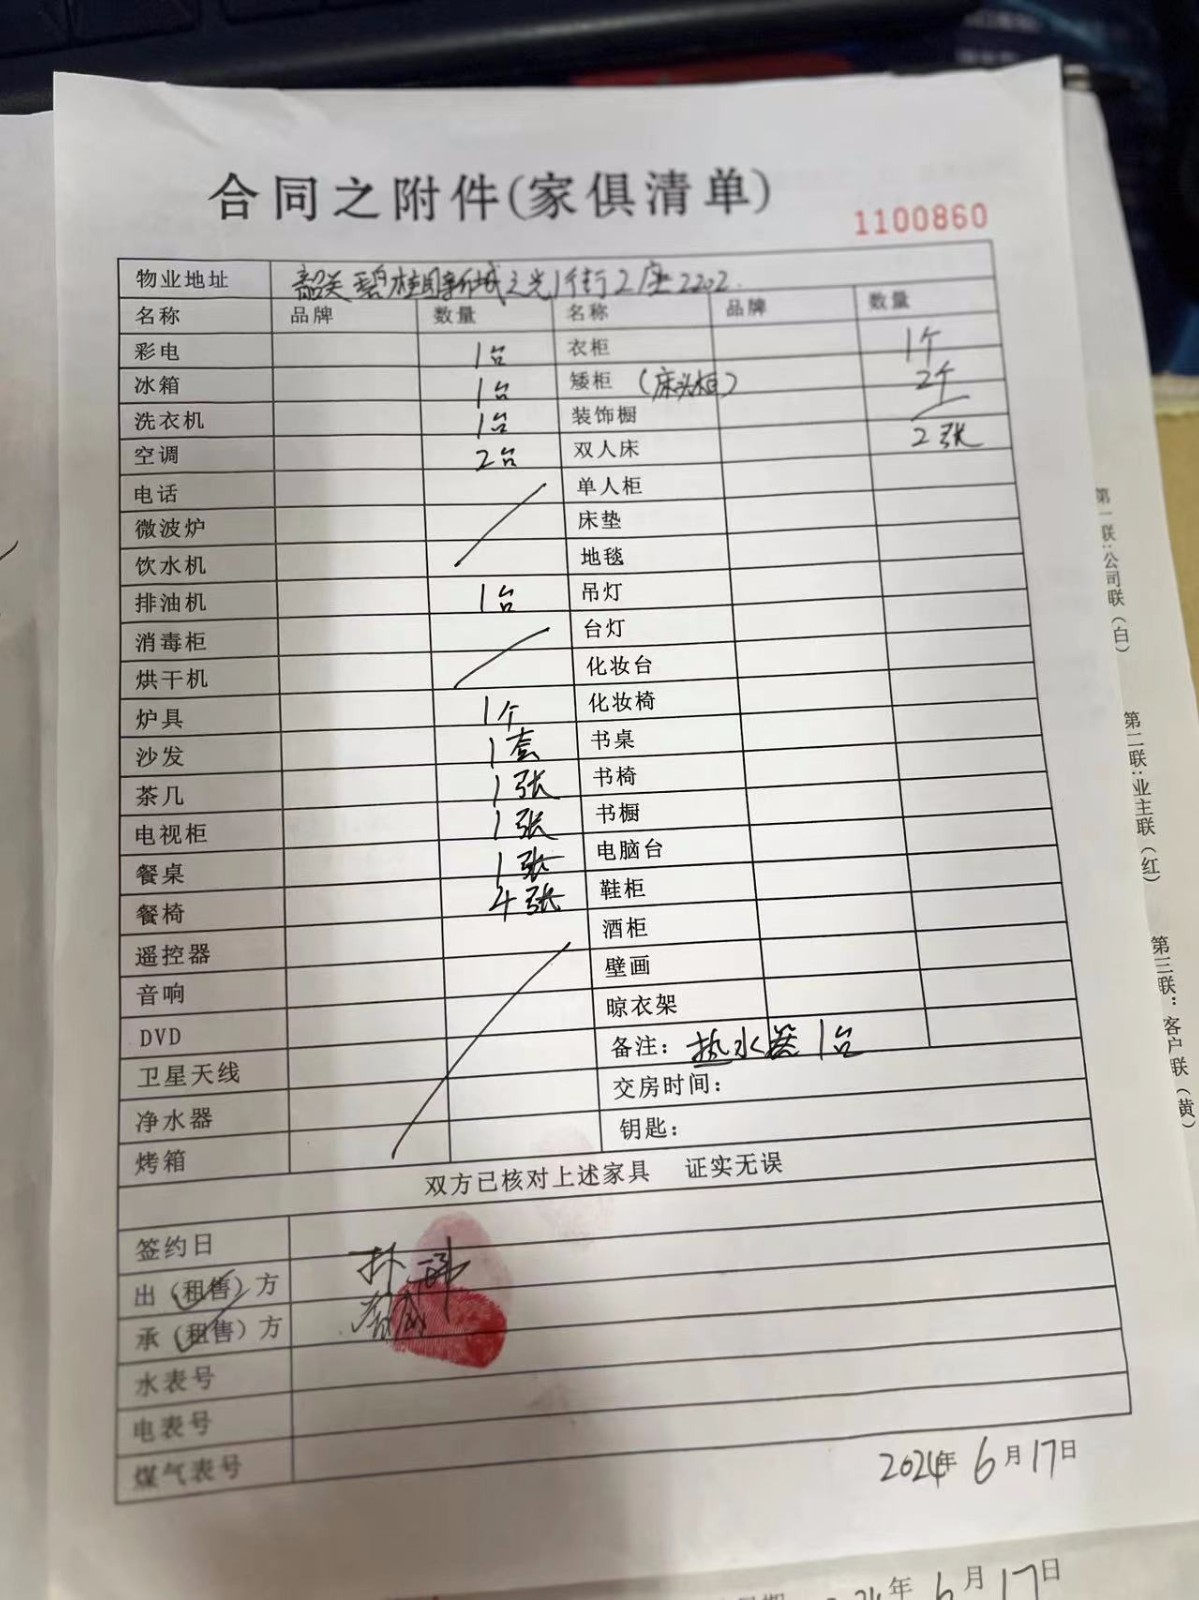 合同之附件(家俱清单)
1100860
物业地址 韶关碧桂园新城之光1街2座2202
名称 品牌 数量 名称 品牌 数量
彩电 1台 衣柜 1个
冰箱 1台 矮柜 (床头柜) 2个
洗衣机 1台 装饰橱
空调 2台 双人床 2张
电话 单人柜
微波炉 床垫
饮水机 地毯
排油机 1台 吊灯
消毒柜 台灯
烘干机 化妆台
炉具 1个 化妆椅
沙发 1套 书桌
茶几 1张 书椅
电视柜 1张 书橱
餐桌 1张 电脑台
餐椅 4张 鞋柜
遥控器 酒柜
音响 壁画
DVD 晾衣架
卫星天线 备注: 热水器1台
净水器 交房时间:
烤箱 钥匙:
双方已核对上述家具 证实无误
签约日
出(租售)方
承(租售)方
水表号
电表号
煤气表号
2024年6月17日
第一联:公司联(白)
第二联:业主联(红)
第三联:客户联(黄)
年6月17日